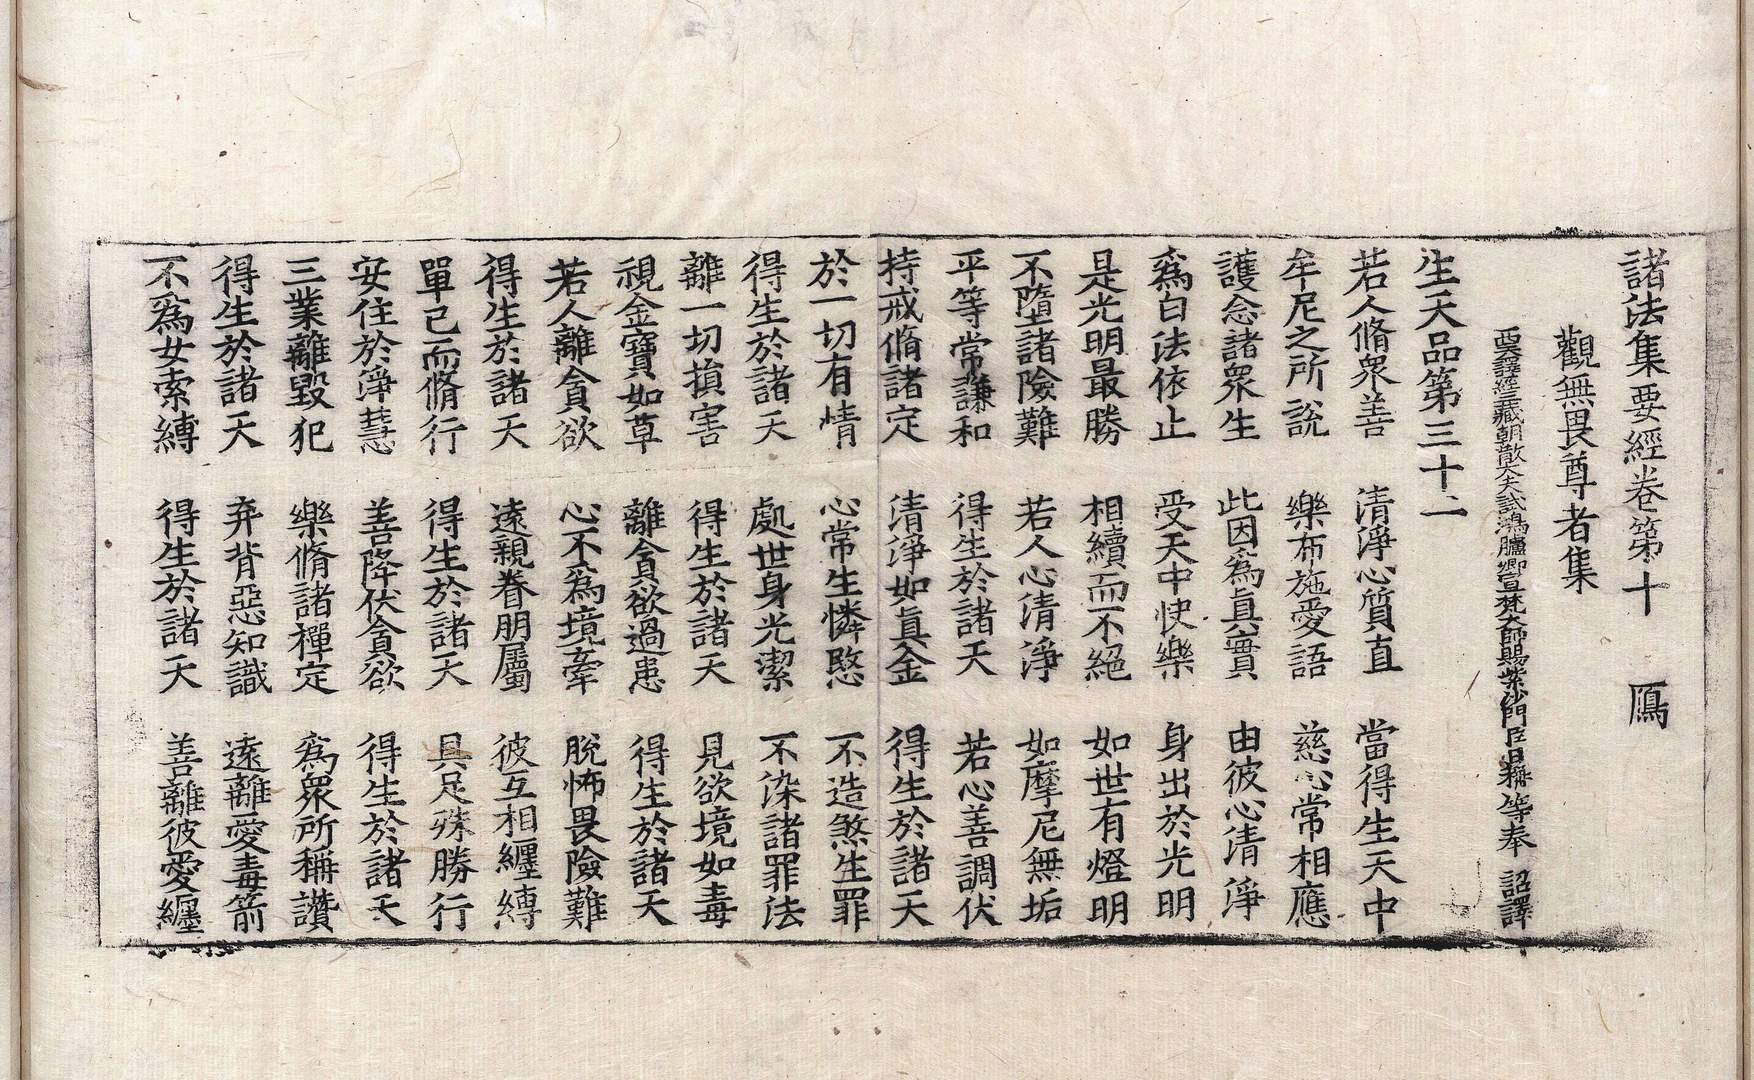 諸法集要經卷第十　鴈
觀無畏尊者集
西天譯經三藏朝散大夫試鴻臚卿宣梵大師賜紫沙門臣日稱等奉　詔譯
生天品第三十二
若人脩衆善　清淨心質直　當得生天中
牟尼之所說　樂布施愛語　慈心常相應
護念諸衆生　此因爲眞實　由彼心清淨
爲白法依止　受天中快樂　身出於光明
是光明最勝　相續而不絕　如世有燈明
不墮諸險難　若人心清淨　如摩尼無垢
平等常謙和　得生於諸天　若心善調伏
持戒脩諸定　清淨如眞金　得生於諸天
於一切有情　心常生憐愍　不造煞生罪
得生於諸天　處世身光潔　不染諸罪法
離一切損害　得生於諸天　見欲境如毒
視金寶如草　離貪欲過患　得生於諸天
若人離貪欲　心不爲境牽　脫怖畏險難
得生於諸天　遠親眷朋屬　彼互相纏縛
單己而脩行　得生於諸天　具足殊勝行
安住於淨慧　善降伏貪欲　得生於諸天
三業離毀犯　樂脩諸禪定　爲衆所稱讚
得生於諸天　弃背惡知識　遠離愛毒箭
不爲女索縛　得生於諸天　善離彼愛纏